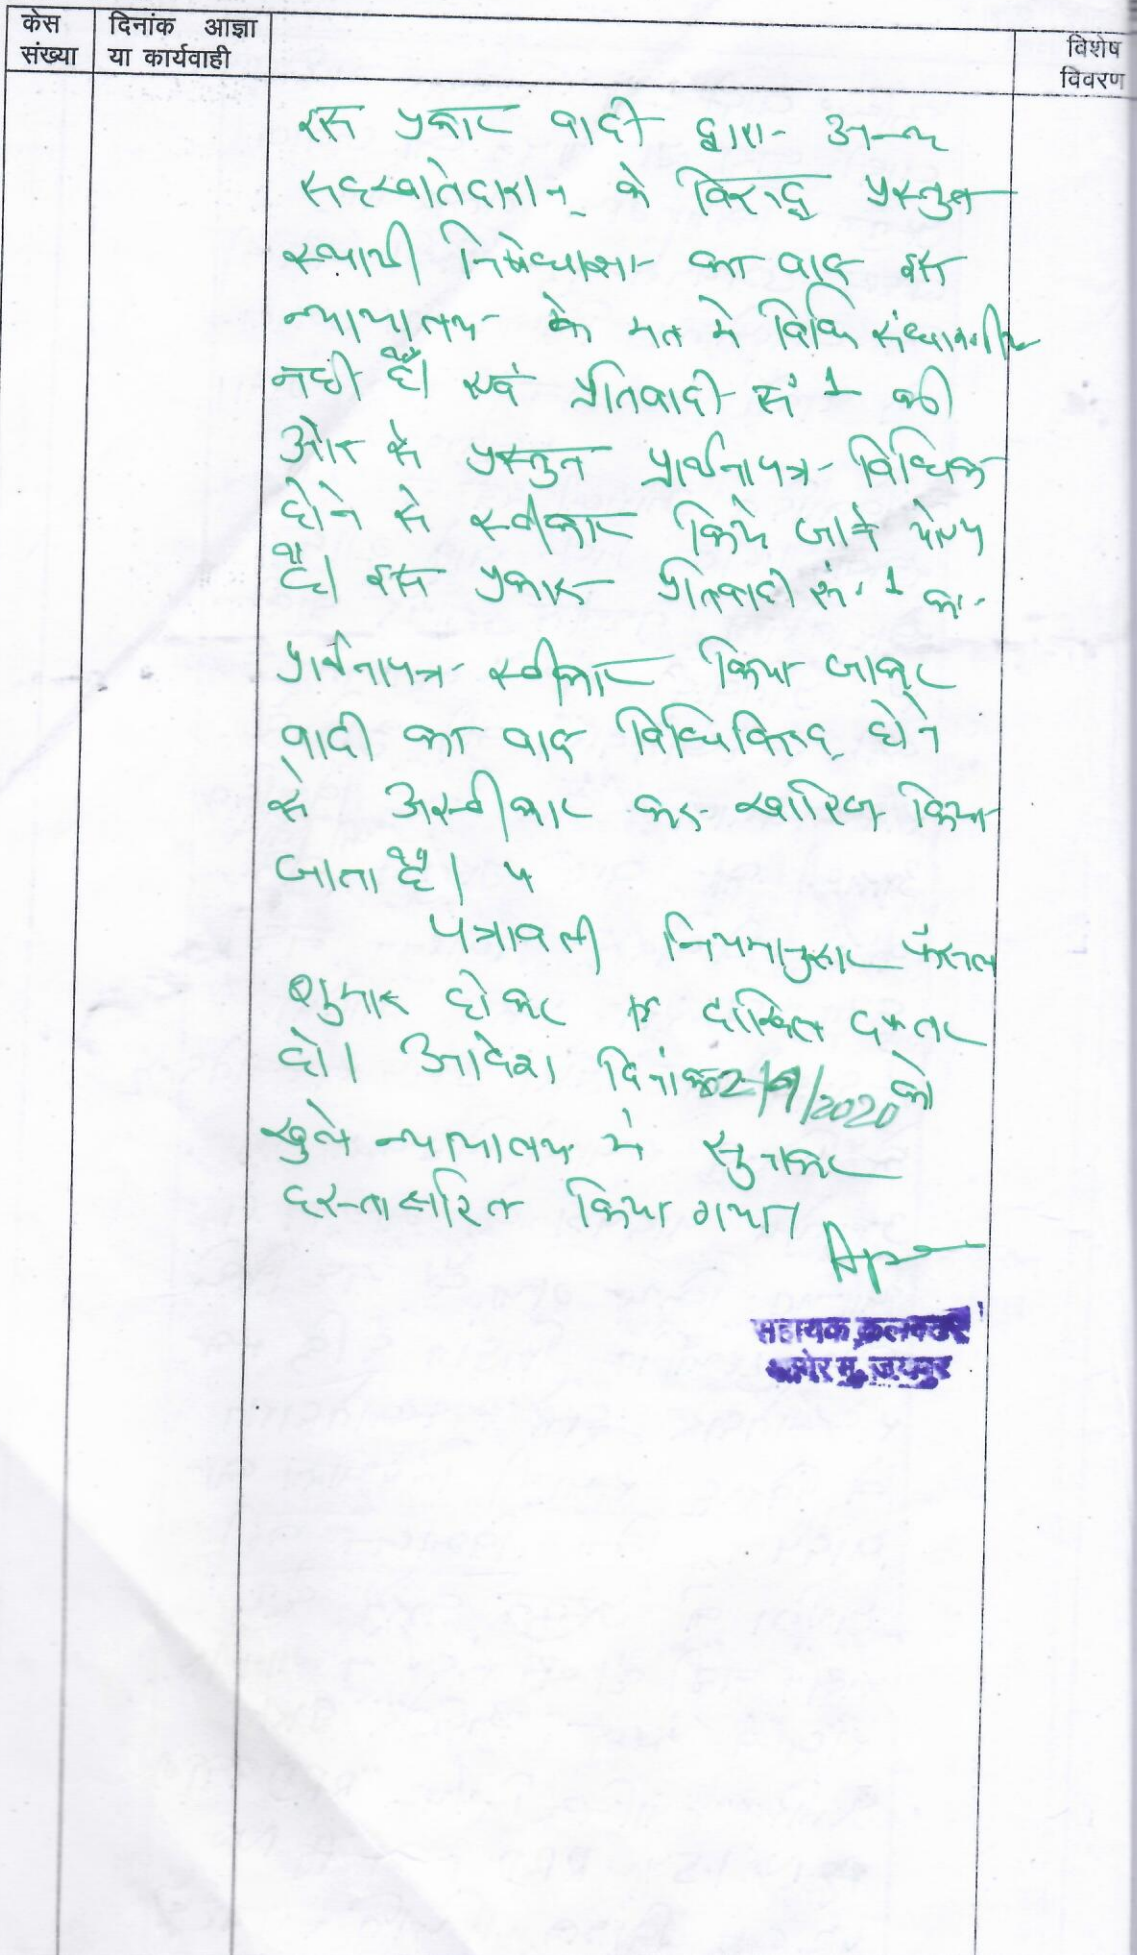 केस संख्या
दिनांक आज्ञा या कार्यवाही
विशेष विवरण
इस प्रकार वादी द्वारा अन्य
सहखातेदारान् के विरुद्ध प्रस्तुत
स्थायी निषेधाज्ञा का वाद इस
न्यायालय के मत मे विधि संधारणीय
नही है। एवं प्रतिवादी सं 1 की
ओर से प्रस्तुत प्रार्थनापत्र विधिक
होने से स्वीकार किये जाने योग्य
है। इस प्रकार प्रतिवादी सं. 1 का
प्रार्थनापत्र स्वीकार किया जाकर
वादी का वाद विधिविरुद्ध होने
से अस्वीकार कर खारिज किया
जाता है।
पत्रावली नियमानुसार फैसल
शुमार होकर दाखिल दफ्तर
हो। आदेश दिनांक 02/9/2020 को
खुले न्यायालय मे सुनाकर
हस्ताक्षरित किया गया।
सहायक कलक्टर
आमेर मु. जयपुर